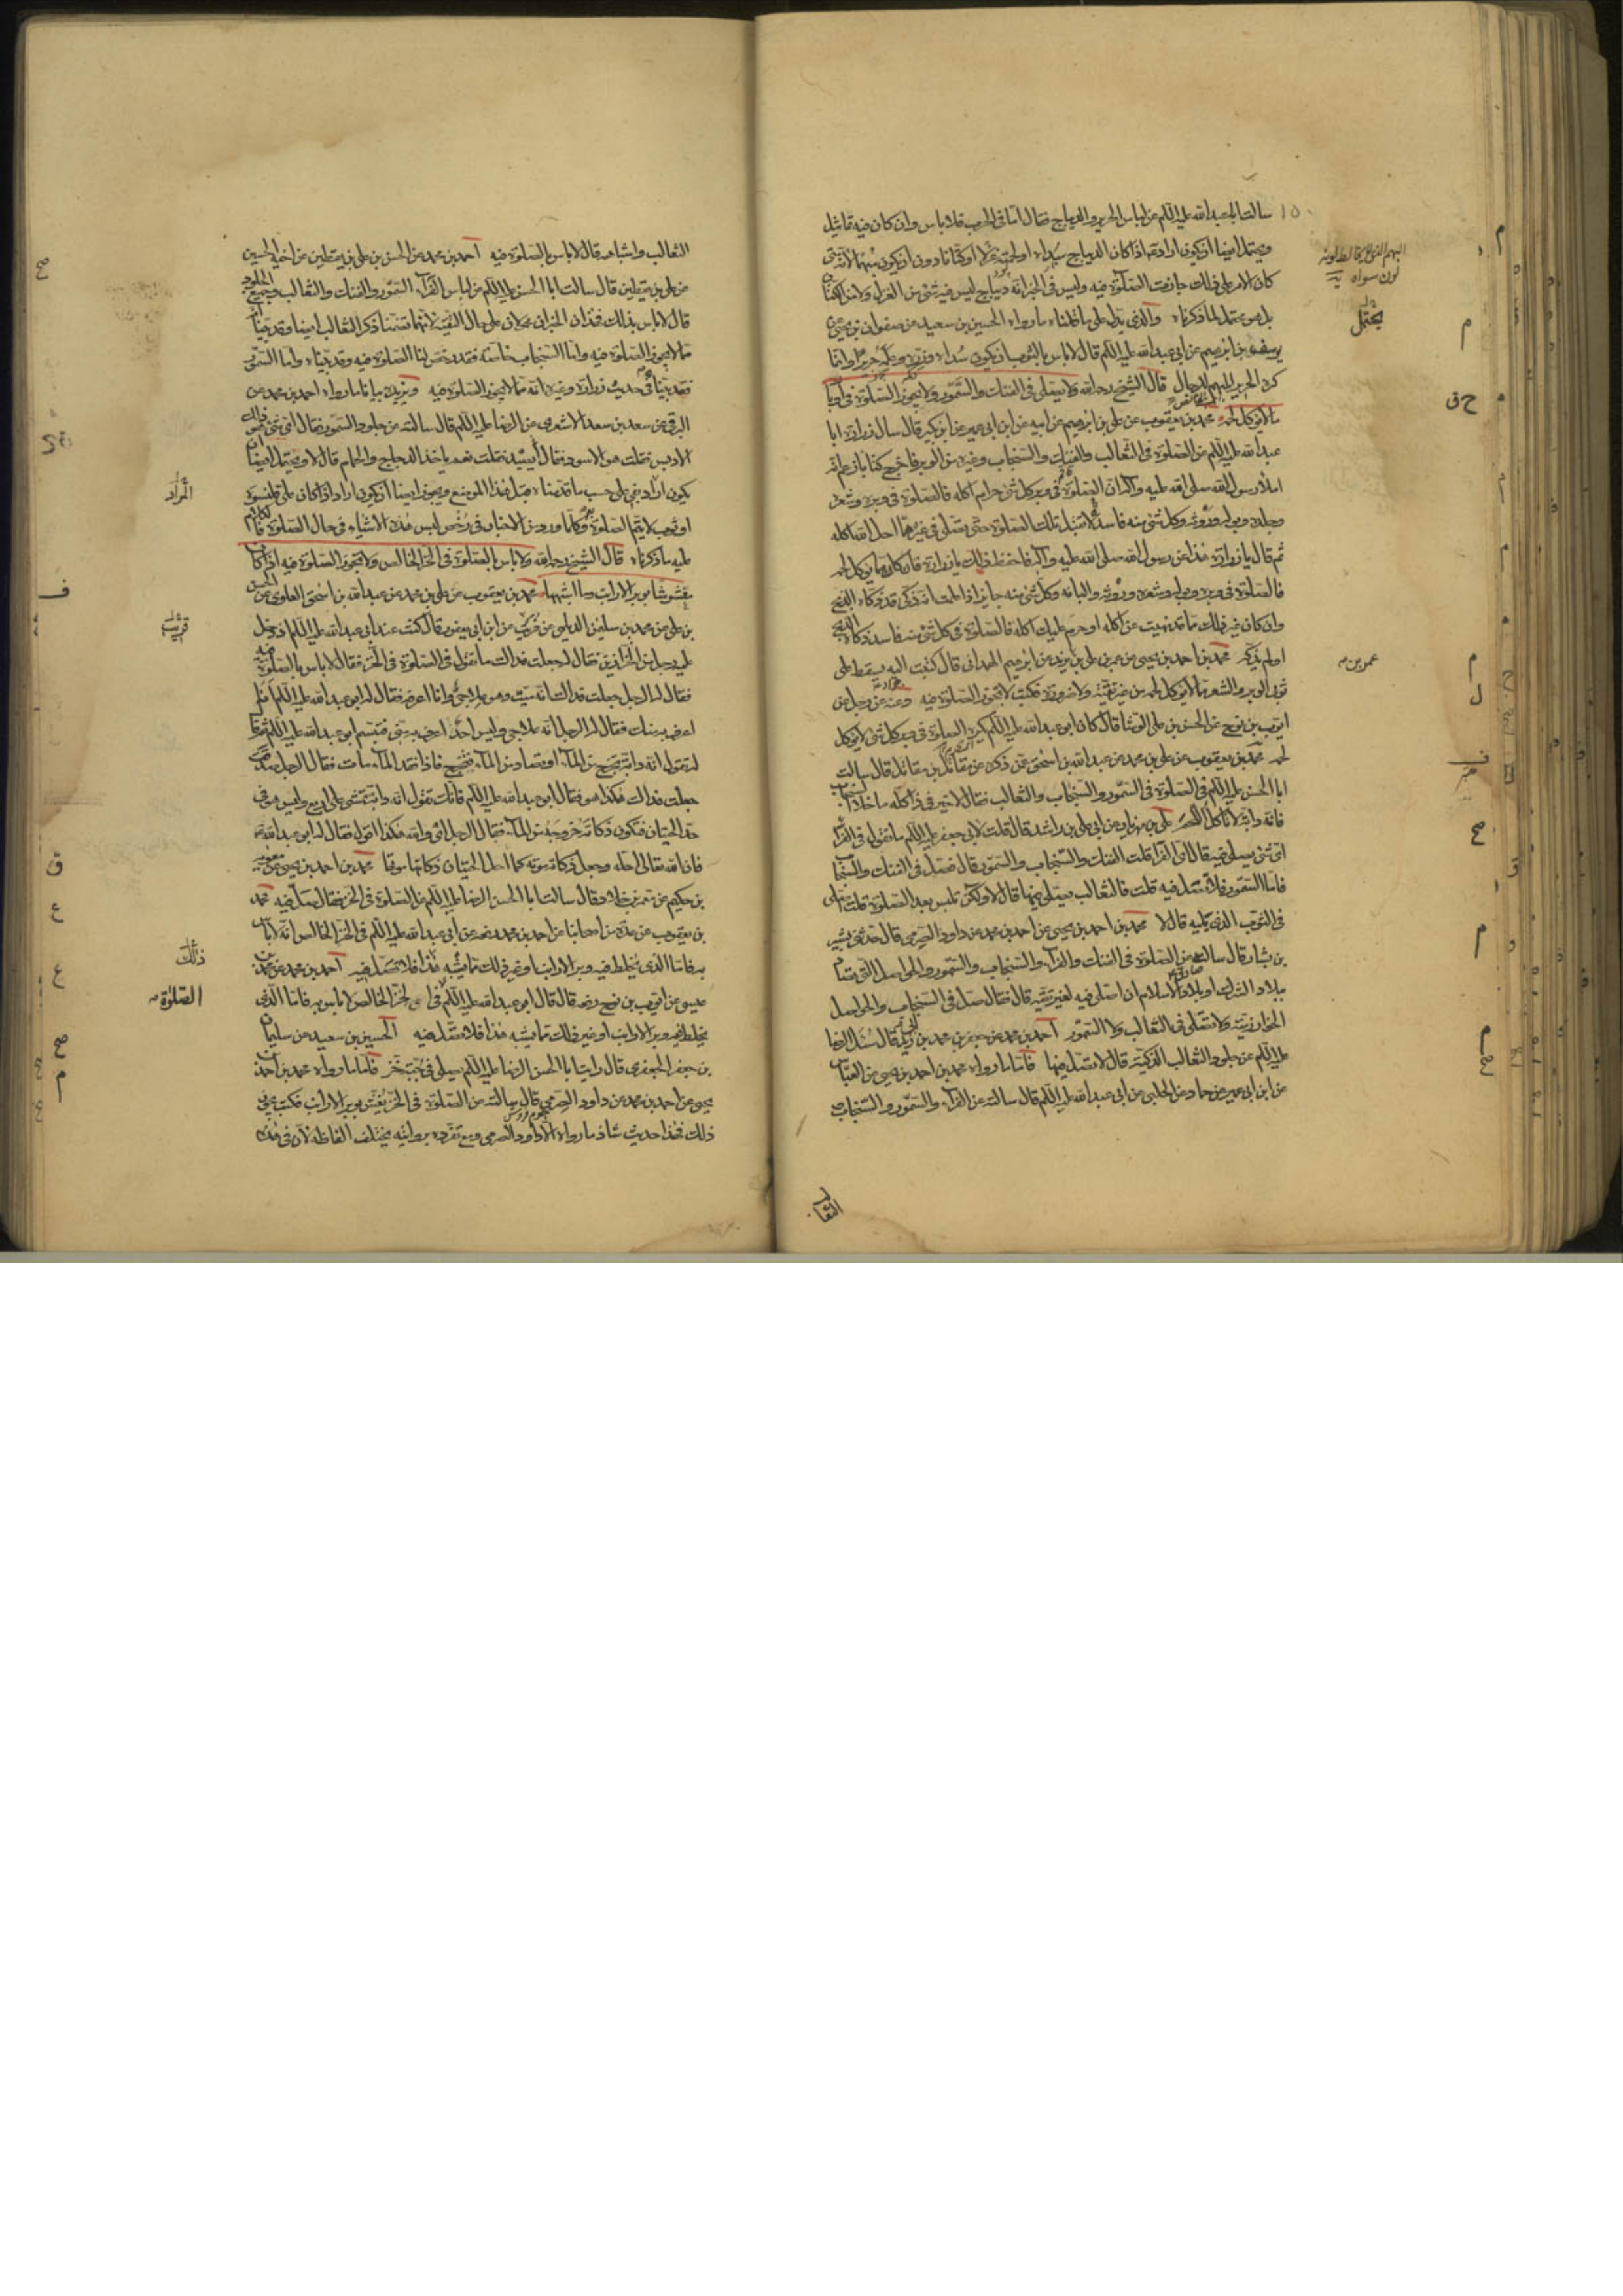 سالت ابا عبد الله عليه السلام عن لباس الحرير والديباج فقال اما فى الحرب فلا باس وان كان فيه تماثيل
ويحتمل ايضا ان يكون اراد به اذا كان الديباج سداه او لحمته غزلا او كتانا دون ان يكون مبهما لانه متى
كان الامر على ذلك جازت الصلوة فيه وليس فى الخبر انه ديباج ليس فيه شئ من الغزل ولا من الكتان
بل هو محتمل لما ذكرناه والذى يدل على ما قلناه ما رواه الحسين بن سعيد عن صفوان بن يحيى عن
يوسف بن ابرهيم عن ابى عبد الله عليه السلام قال لا باس بالثوب ان يكون سداه وزره وعلمه حريرا وانما
كره الحرير المبهم للرجال قال الشيخ رحمه الله ولا يصلى فى الفنك والسمور ولا تجوز الصلوة فى اوبار
ما لا يؤكل لحمه محمد بن يعقوب عن على بن ابرهيم عن ابيه عن ابن ابى عمير عن ابن بكير قال سال زرارة ابا
عبد الله عليه السلام عن الصلوة فى الثعالب والفنك والسنجاب وغيره من الوبر فاخرج كتابا زعم انه
املاء رسول الله صلى الله عليه وآله ان الصلوة فى وبر كل شئ حرام اكله فالصلوة فى وبره وشعره
وجلده وبوله وروثه وكل شئ منه فاسدة لا تقبل تلك الصلوة حتى تصلى فى غيره مما احل الله اكله
ثم قال يا زرارة هذا عن رسول الله صلى الله عليه وآله فاحفظ ذلك يا زرارة فان كان مما يؤكل لحمه
فالصلوة فى وبره وبوله وشعره وروثه والبانه وكل شئ منه جايزة اذا علمت انه ذكى قد ذكاه الذبح
وان كان غير ذلك مما قد نهيت عن اكله او حرم عليك اكله فالصلوة فى كل شئ منه فاسد ذكاه الذبح
او لم يذكه محمد بن احمد بن يحيى عن عمر بن على بن عمر بن يزيد عن ابرهيم الهمدانى قال كتبت اليه يسقط على
ثوبى الوبر والشعر مما لا يؤكل لحمه من غير تقية ولا ضرورة فكتب لا تجوز الصلوة فيه وعنه عن رجل عن
ايوب بن نوح عن الحسن بن على الوشا قال كان ابو عبد الله عليه السلام يكره الصلوة فى وبر كل شئ لا يؤكل
لحمه محمد بن يعقوب عن على بن محمد عن عبد الله بن اسحق عمن ذكره عن مقاتل بن مقاتل قال سالت
ابا الحسن عليه السلام عن الصلوة فى السمور والسنجاب والثعالب فقال لا خير فى ذا كله ما خلا السنجاب
فانه دابة لا تاكل اللحم على بن مهزيار عن ابى على بن راشد قال قلت لابى جعفر عليه السلام ما تقول فى الفرا
اى شئ يصلى فيه قال اى الفرا قلت الفنك والسنجاب والسمور قال فصل فى الفنك والسنجاب
فاما السمور فلا تصل فيه قلت فالثعالب يصلى فيها قال لا ولكن تلبس بعد الصلوة قلت اصلى
فى الثوب الذى يليه قال لا محمد بن احمد بن يحيى عن احمد بن محمد عن داود الصرمى قال حدثنى بشير
بن بشار قال سالته عن الصلوة فى الفنك والفراء والسنجاب والسمور والحواصل التى تصاد
ببلاد الشرك او بلاد الاسلام ان اصلى فيه لغير تقية قال فقال صل فى السنجاب والحواصل
الخوارزمية ولا تصل فى الثعالب ولا السمور احمد بن محمد عن جعفر بن محمد بن ابى زيد قال سئل الرضا
عليه السلام عن جلود الثعالب الذكية قال لا تصل فيها فاما ما رواه محمد بن احمد بن يحيى عن العباس
عن ابن ابى عمير عن حماد عن الحلبى عن ابى عبد الله عليه السلام قال سالته عن الفراء والسمور والسنجاب
يحتمل
الثعالب واشباهه قال لا باس بالصلوة فيه احمد بن محمد عن الحسن بن على بن يقطين عن اخيه الحسين
عن على بن يقطين قال سالت ابا الحسن عليه السلام عن لباس الفراء والسمور والفنك والثعالب وجميع الجلود
قال لا باس بذلك فهذان الخبران محمولان على حال التقية لانهما تضمنا ذكر الثعالب ايضا وقد بينا
مما لا تجوز الصلوة فيه واما السنجاب خاصة فقد رخص لنا الصلوة فيه وقد بيناه واما السمور
فقد بينا فى حديث زرارة وغيره انه مما لا تجوز الصلوة فيه ويزيده بيانا ما رواه احمد بن محمد عن
البرقى عن سعد بن سعد الاشعرى عن الرضا عليه السلام قال سالته عن جلود السمور فقال اى شئ هو ذلك
الادبس فقلت هو الاسود فقال ايصيد فقلت نعم ياخذ الدجاج والحمام قال لا ويحتمل ايضا ان
يكون اراد بفى على حسب ما قدمناه قبل هذا الموضع ويجوز ايضا ان يكون اراد اذا كان على قلنسوة
او ثوب لا يتم الصلوة به وكلما ورد من الاخبار فى رخص لبس هذه الاشياء فى حال الصلوة فالكلام
عليه ما ذكرناه قال الشيخ رحمه الله ولا باس بالصلوة فى الخز الخالص ولا تجوز الصلوة فيه اذا كان
مغشوشا بوبر الارانب وما اشبهها محمد بن يعقوب عن على بن محمد عن عبد الله بن اسحق العلوى عن الحسن
بن على عن محمد بن سليمن الديلمى عن قريب عن ابن ابى يعفور قال كنت عند ابى عبد الله عليه السلام اذ دخل
عليه رجل من الخزازين فقال له جعلت فداك ما تقول فى الصلوة فى الخز فقال لا باس بالصلوة فيه
فقال له الرجل جعلت فداك انه ميت وهو علاجى وانا اعرفه فقال له ابو عبد الله عليه السلام انا
اعرف به منك فقال له الرجل انه علاجى وليس احد اعرف به منى فتبسم ابو عبد الله عليه السلام ثم قال
له تقول انه دابة تخرج من الماء او تصاد من الماء فتخرج فاذا فقد الماء مات فقال الرجل صدقت
جعلت فداك هكذا هو فقال ابو عبد الله عليه السلام فانك تقول انه دابة تمشى على اربع وليس هو فى
حد الحيتان فتكون ذكاته خروجه من الماء فقال الرجل اى والله هكذا اقول فقال له ابو عبد الله
فان الله تعالى احله وجعل ذكاته موته كما احل الحيتان وجعل ذكاتها موتها محمد بن احمد بن يحيى عن معوية
بن حكيم عن معمر بن خلاد قال سالت ابا الحسن الرضا عليه السلام عن الصلوة فى الخز فقال صل فيه محمد
بن يعقوب عن عدة من اصحابنا عن احمد بن محمد رفعه عن ابى عبد الله عليه السلام فى الخز الخالص انه لا باس
به فاما الذى يخلط فيه وبر الارانب او غير ذلك مما يشبه هذا فلا تصل فيه احمد بن محمد عن محمد بن
عيسى عن ايوب بن نوح رفعه قال قال ابو عبد الله عليه السلام فى الخز الخالص لا باس به فاما الذى
يخلط فيه وبر الارانب او غير ذلك مما يشبه هذا فلا تصل فيه الحسين بن سعيد عن سليمان
بن جعفر الجعفرى قال رايت ابا الحسن الرضا عليه السلام يصلى فى جبة خز فاما ما رواه محمد بن احمد بن
يحيى عن احمد بن محمد عن داود الصرمى قال سالته عن الصلوة فى الخز يغش بوبر الارانب فكتب يجوز
ذلك فهذا حديث شاذ ما رواه الا داود الصرمى ومع تفرده بروايته يختلف الفاظه لان فى هذه
المراد
قريب
ذلك
الصلوة